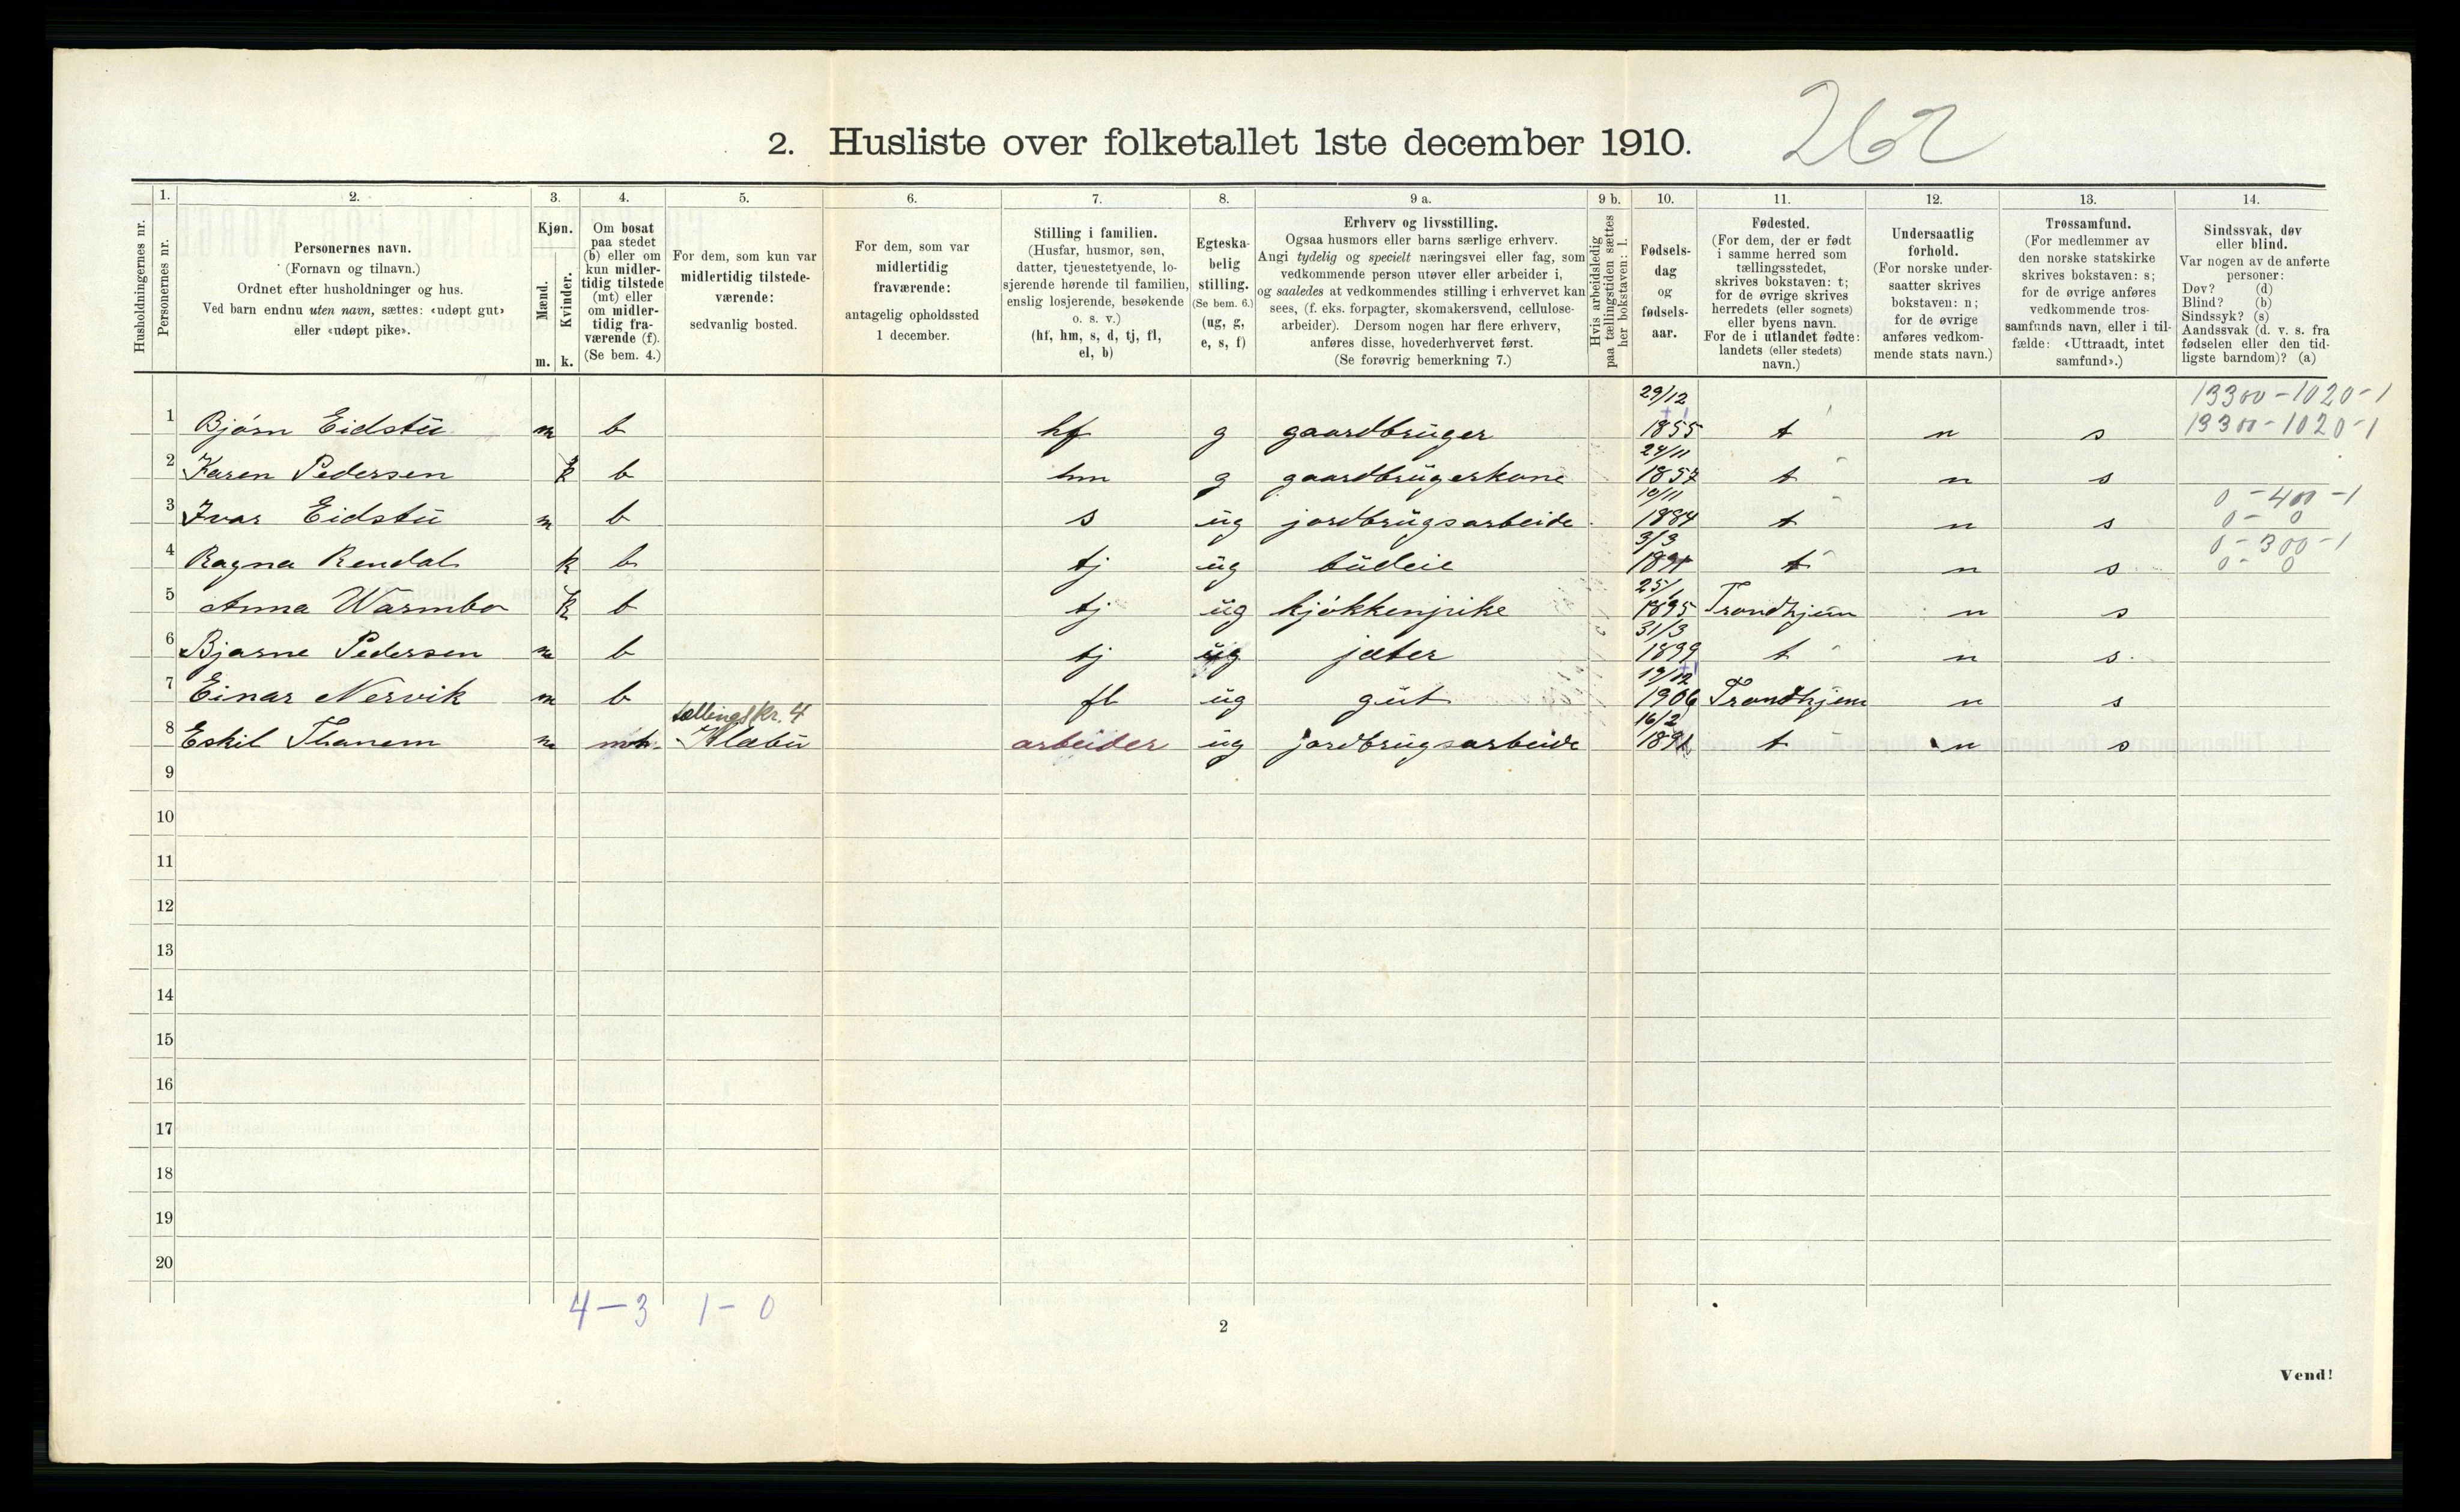 2. Husliste over folketallet 1ste december 1910. 262
Husholdningernes nr.
1. Personernes nr.
2. Personernes navn. (Fornavn og tilnavn.) Ordnet efter husholdninger og hus. Ved barn endnu uten navn, sættes: «udøpt gut» eller «udøpt pike».
3. Kjøn. Mænd. m. Kvinder. k.
4. Om bosat paa stedet (b) eller om kun midlertidig tilstede (mt) eller om midlertidig fraværende (f). (Se bem. 4.)
5. For dem, som kun var midlertidig tilstedeværende: sedvanlig bosted.
6. For dem, som var midlertidig fraværende: antagelig opholdssted 1 december.
7. Stilling i familien. (Husfar, husmor, søn, datter, tjenestetyende, losjerende hørende til familien, enslig losjerende, besøkende o. s. v.) (hf, hm, s, d, tj, fl, el, b)
8. Egteskabelig stilling. (Se bem. 6.) (ug, g, e, s, f)
9 a. Erhverv og livsstilling. Ogsaa husmors eller barns særlige erhverv. Angi tydelig og specielt næringsvei eller fag, som vedkommende person utøver eller arbeider i, og saaledes at vedkommendes stilling i erhvervet kan sees, (f. eks. forpagter, skomakersvend, cellulosearbeider). Dersom nogen har flere erhverv, anføres disse, hovederhvervet først. (Se forøvrig bemerkning 7.)
9 b. Hvis arbeidsledig paa tællingstiden sættes her bokstaven: l.
10. Fødselsdag og fødselsaar.
11. Fødested. (For dem, der er født i samme herred som tællingsstedet, skrives bokstaven: t; for de øvrige skrives herredets (eller sognets) eller byens navn. For de i utlandet fødte: landets (eller stedets) navn.)
12. Undersaatlig forhold. (For norske undersaatter skrives bokstaven: n; for de øvrige anføres vedkommende stats navn.)
13. Trossamfund. (For medlemmer av den norske statskirke skrives bokstaven: s; for de øvrige anføres vedkommende trossamfunds navn, eller i tilfælde: «Uttraadt, intet samfund».)
14. Sindssvak, døv eller blind. Var nogen av de anførte personer: Døv? (d) Blind? (b) Sindssyk? (s) Aandssvak (d. v. s. fra fødselen eller den tidligste barndom)? (a)
1 Bjørn Eidstu m b hf g gaardbruger 29/12 1855 t n s 13300-1020-1 13300-1020-1
2 Karen Pedersen k b hm g gaardbrugerkone 24/11 1857 t n s
3 Ivar Eidstu m b s ug jordbrugsarbeide 10/11 1884 t n s 0-400-1 0-0
4 Ragna Rendal k b tj ug budeie 3/3 1891 t n s 0-300-1 0-0
5 Anna Warmbo k b tj ug kjøkkenpike 25/1 1895 Trondhjem n s
6 Bjarne Pedersen m b tj ug jæter 31/3 1899 t n s
7 Einar Nervik m b fl ug gut 19/12 1906 Trondhjem n s
8 Eskil Thanem m mt tællingskr. 4 Klæbu arbeider ug jordbrugsarbeide 16/2 t n s
9
10
11
12
13
14
15
16
17
18
19
20
4-3 1-0
2
Vend!